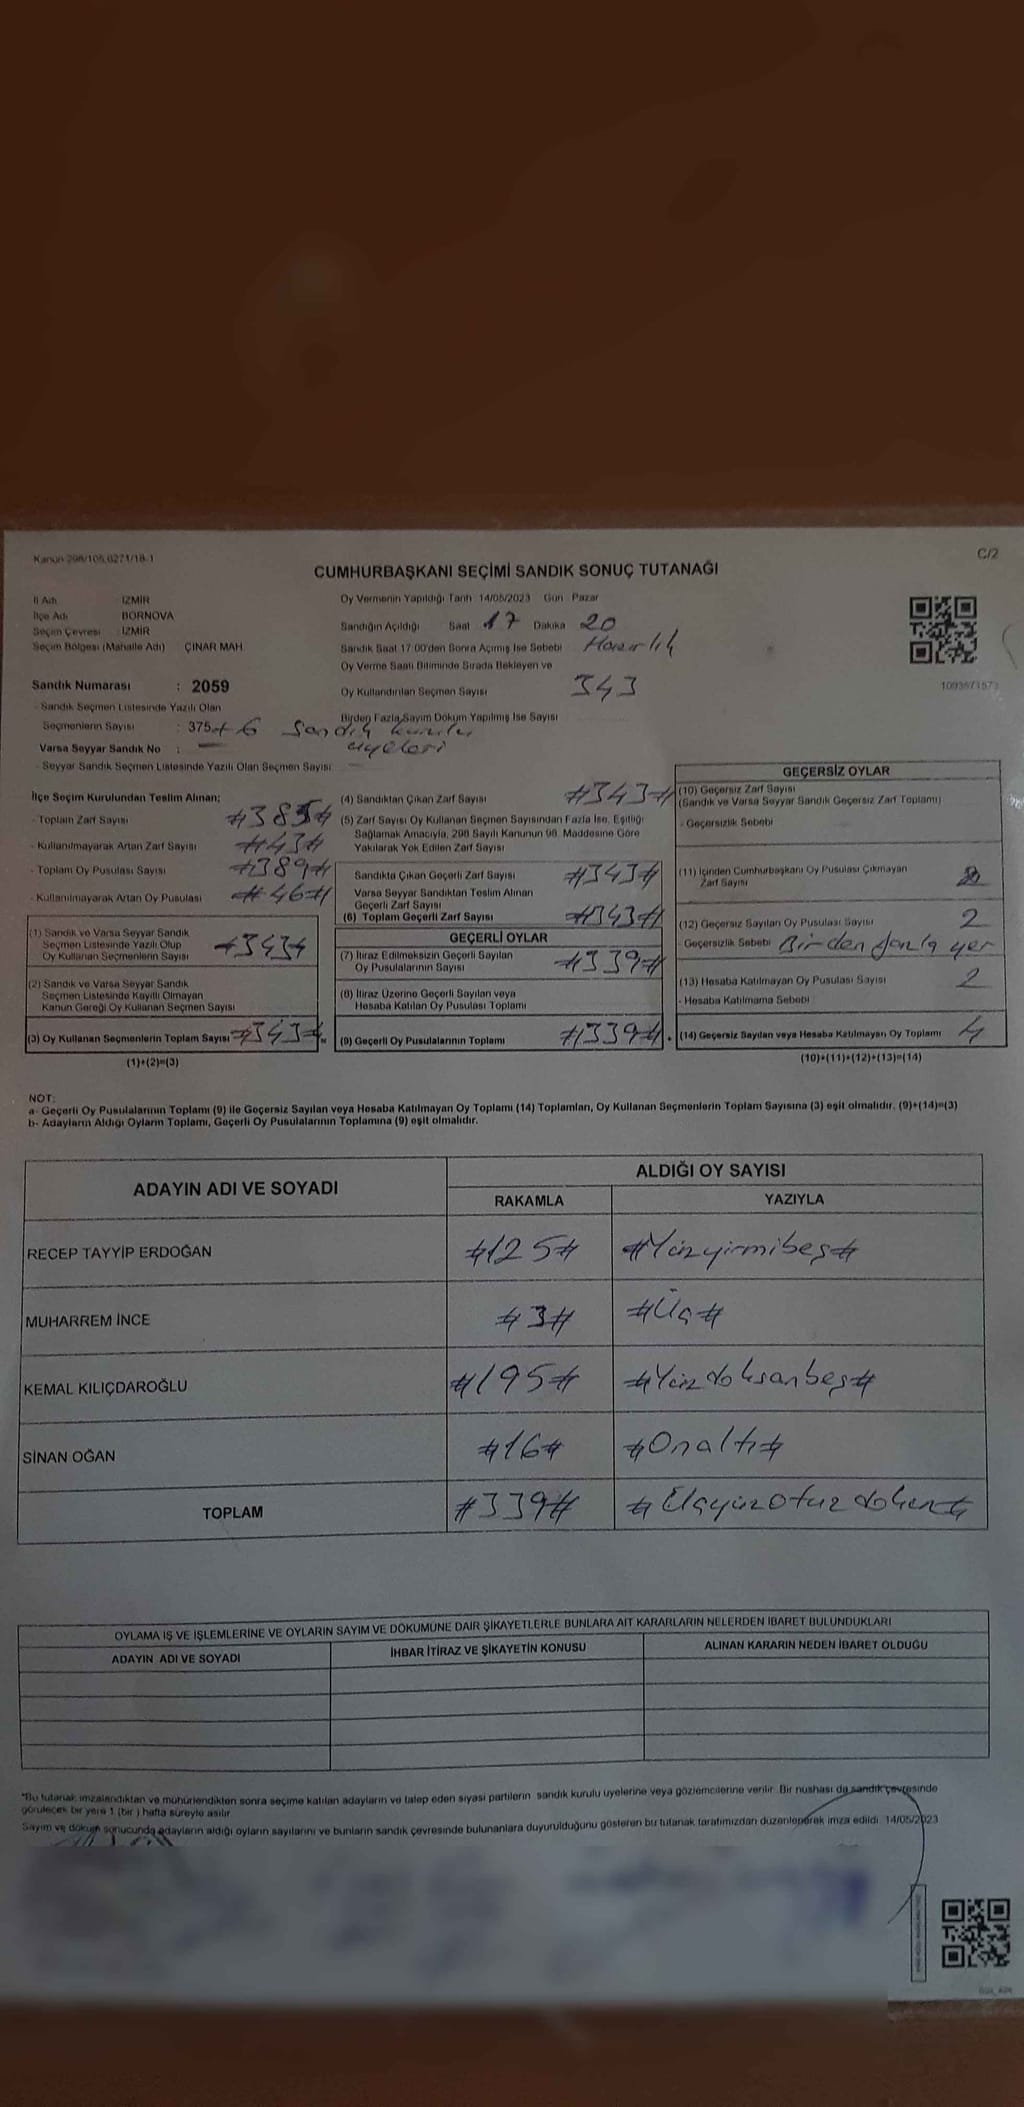 Kanun 298/105,6271/18-1
C/2
CUMHURBAŞKANI SEÇİMİ SANDIK SONUÇ TUTANAĞI
İl Adı İZMİR
İlçe Adı BORNOVA
Seçim Çevresi : İZMİR
Seçim Bölgesi (Mahalle Adı) ÇINAR MAH
Oy Vermenin Yapıldığı Tarih 14/05/2023 Gün Pazar
Sandığın Açıldığı Saat 17 Dakika 20
Sandık Saat 17:00'den Sonra Açımış İse Sebebi Hazırlık
Oy Verme Saati Bitiminde Sırada Bekleyen ve
Oy Kullandırılan Seçmen Sayısı 343
Birden Fazla Sayım Döküm Yapılmış İse Sayısı
1093571573
Sandık Numarası : 2059
- Sandık Seçmen Listesinde Yazılı Olan
Seçmenlerin Sayısı : 375 + 6 Sandık kurulu üyeleri
Varsa Seyyar Sandık No : —
- Seyyar Sandık Seçmen Listesinde Yazılı Olan Seçmen Sayısı
İlçe Seçim Kurulundan Teslim Alınan;
- Toplam Zarf Sayısı #385#
- Kullanılmayarak Artan Zarf Sayısı #43#
- Toplam Oy Pusulası Sayısı #389#
- Kullanılmayarak Artan Oy Pusulası #46#
(1) Sandık ve Varsa Seyyar Sandık
Seçmen Listesinde Yazılı Olup
Oy Kullanan Seçmenlerin Sayısı #343#
(2) Sandık ve Varsa Seyyar Sandık
Seçmen Listesinde Kayıtlı Olmayan
Kanun Gereği Oy Kullanan Seçmen Sayısı
(3) Oy Kullanan Seçmenlerin Toplam Sayısı #343# =
(1)+(2)=(3)
(4) Sandıktan Çıkan Zarf Sayısı #343#
(5) Zarf Sayısı Oy Kullanan Seçmen Sayısından Fazla İse, Eşitliği
Sağlamak Amacıyla, 298 Sayılı Kanunun 98. Maddesine Göre
Yakılarak Yok Edilen Zarf Sayısı
Sandıkta Çıkan Geçerli Zarf Sayısı #343#
Varsa Seyyar Sandıktan Teslim Alınan
Geçerli Zarf Sayısı
(6) Toplam Geçerli Zarf Sayısı #343#
GEÇERLİ OYLAR
(7) İtiraz Edilmeksizin Geçerli Sayılan
Oy Pusulalarının Sayısı #339#
(8) İtiraz Üzerine Geçerli Sayılan veya
Hesaba Katılan Oy Pusulası Toplamı
(9) Geçerli Oy Pusulalarının Toplamı #339# +
GEÇERSİZ OYLAR
(10) Geçersiz Zarf Sayısı
(Sandık ve Varsa Seyyar Sandık Geçersiz Zarf Toplamı)
- Geçersizlik Sebebi
(11) İçinden Cumhurbaşkanı Oy Pusulası Çıkmayan
Zarf Sayısı
(12) Geçersiz Sayılan Oy Pusulası Sayısı 2
- Geçersizlik Sebebi Birden fazla yer
(13) Hesaba Katılmayan Oy Pusulası Sayısı 2
- Hesaba Katılmama Sebebi
(14) Geçersiz Sayılan veya Hesaba Katılmayan Oy Toplamı 4
(10)+(11)+(12)+(13)=(14)
NOT:
a- Geçerli Oy Pusulalarının Toplamı (9) ile Geçersiz Sayılan veya Hesaba Katılmayan Oy Toplamı (14) Toplamları, Oy Kullanan Seçmenlerin Toplam Sayısına (3) eşit olmalıdır. (9)+(14)=(3)
b- Adayların Aldığı Oyların Toplamı, Geçerli Oy Pusulalarının Toplamına (9) eşit olmalıdır.
ADAYIN ADI VE SOYADI
ALDIĞI OY SAYISI
RAKAMLA YAZIYLA
RECEP TAYYİP ERDOĞAN #125# #Yüzyirmibeş#
MUHARREM İNCE #3# #Üç#
KEMAL KILIÇDAROĞLU #195# #Yüzdoksanbeş#
SİNAN OĞAN #16# #Onaltı#
TOPLAM #339# #Üçyüzotuzdokuz#
OYLAMA İŞ VE İŞLEMLERİNE VE OYLARIN SAYIM VE DÖKÜMÜNE DAİR ŞİKAYETLERLE BUNLARA AİT KARARLARIN NELERDEN İBARET BULUNDUKLARI
ADAYIN ADI VE SOYADI İHBAR İTİRAZ VE ŞİKAYETİN KONUSU ALINAN KARARIN NEDEN İBARET OLDUĞU
*Bu tutanak imzalandıktan ve mühürlendikten sonra seçime katılan adayların ve talep eden siyasi partilerin sandık kurulu üyelerine veya gözlemcilerine verilir. Bir nüshası da sandık çevresinde
görülecek bir yere 1 (bir ) hafta süreyle asılır.
Sayım ve döküm sonucunda adayların aldığı oyların sayılarını ve bunların sandık çevresinde bulunanlara duyurulduğunu gösteren bu tutanak tarafımızdan düzenlenerek imza edildi. 14/05/2023